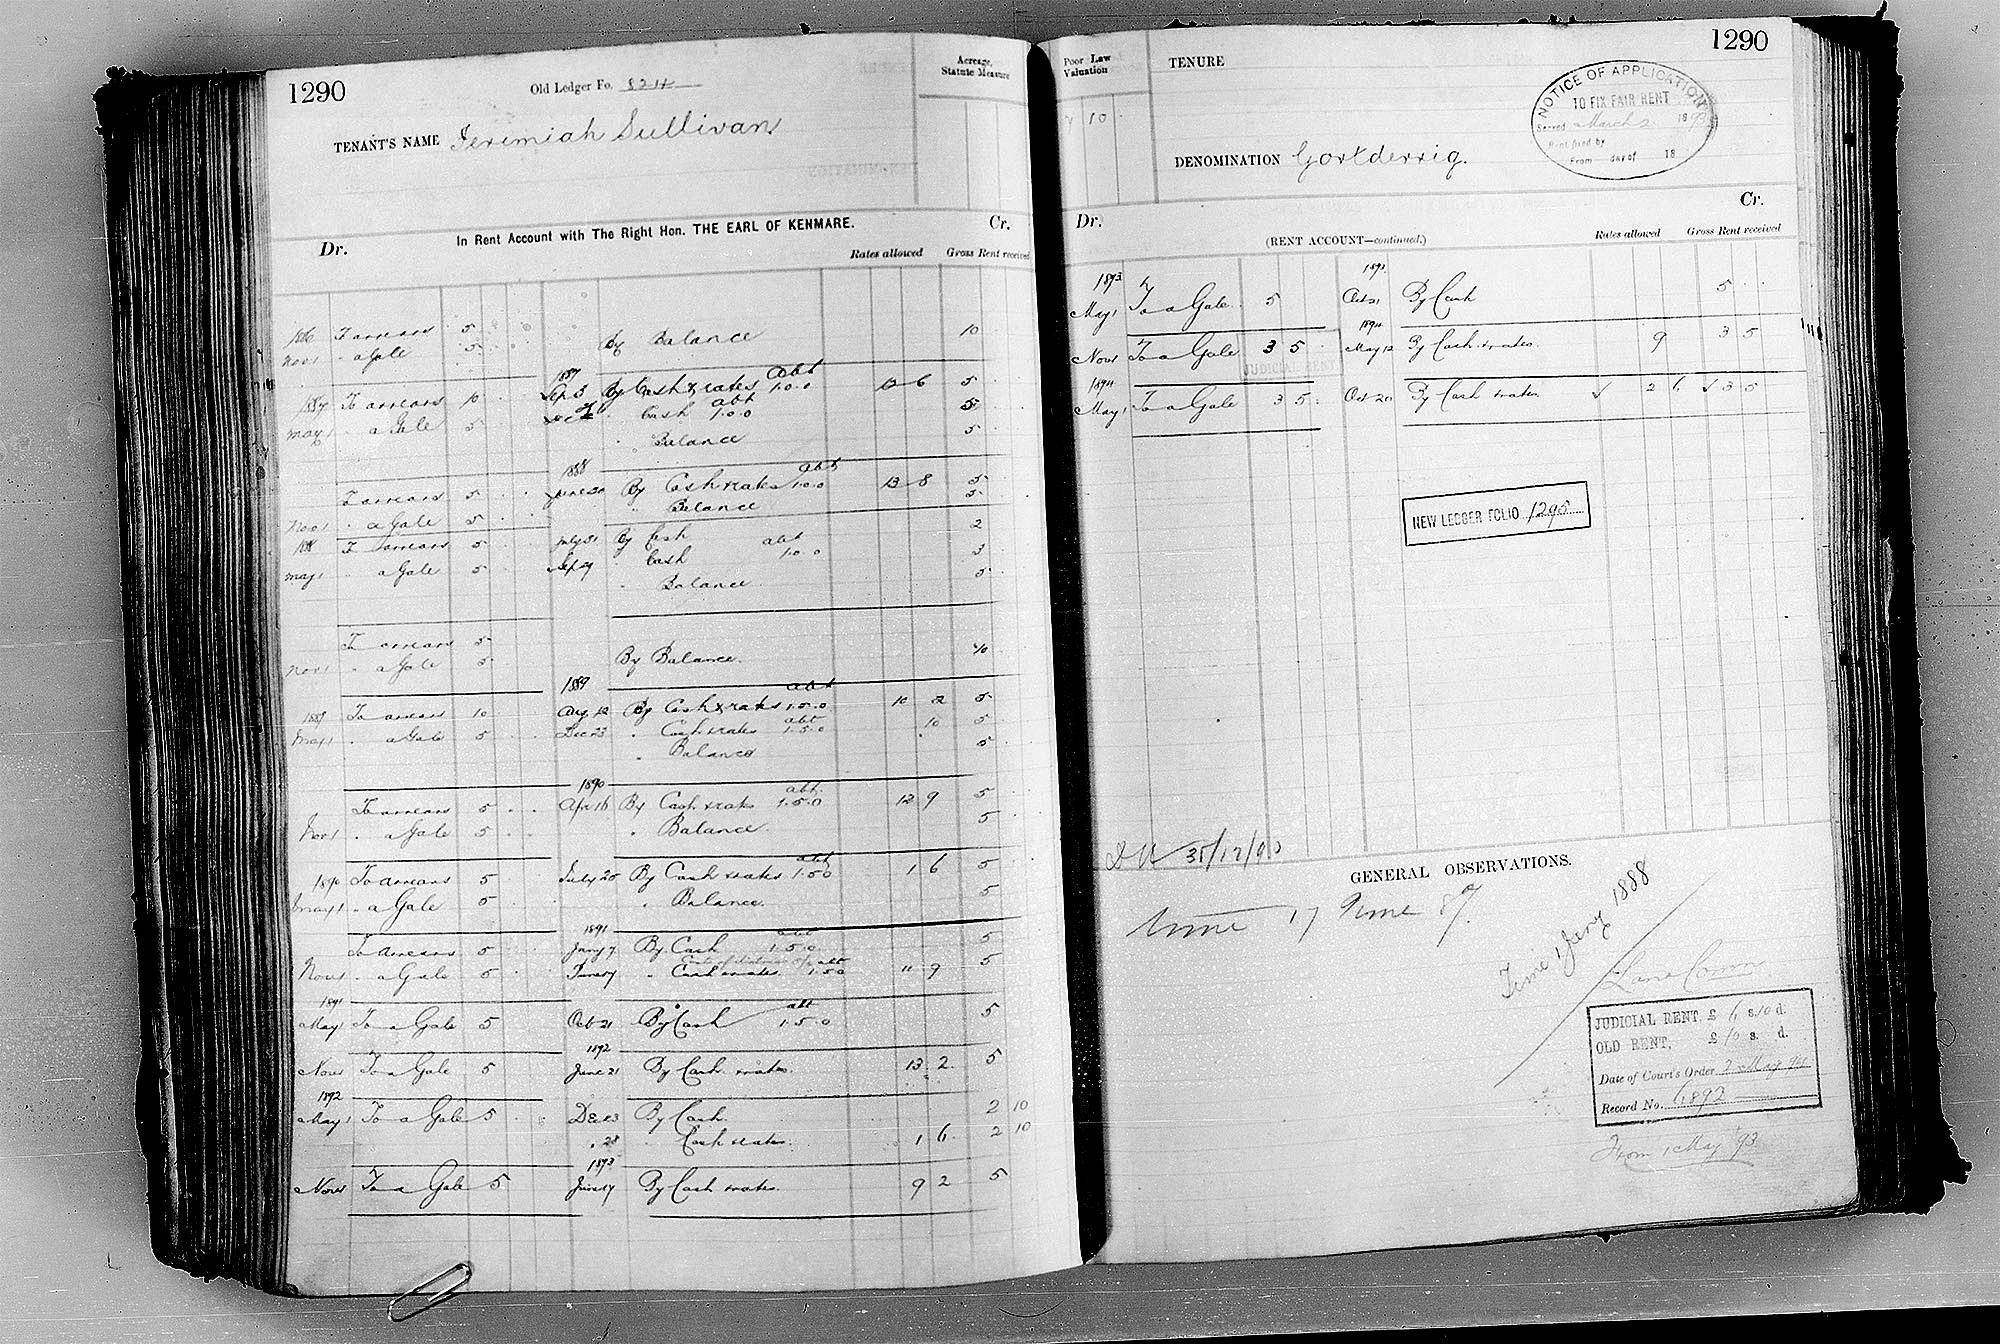 1290
Old Ledger Fo. 824
Acreage, Statute Measure
TENANT'S NAME Jeremiah Sullivan
In Rent Account with The Right Hon. THE EARL OF KENMARE.
Dr. Cr.
Rates allowed Gross Rent received
1886 To arrears 5 By Balance 10
Nov 1 " a Gale 5
1887
1887 To arrears 10 Sep 3 By Cash & rates abt 1.0.0 12 6 5
May 1 " a Gale 5 Dec Cash abt 1.0.0 5
" Balance 5
1888
To arrears 5 June 20 By Cash & rates abt 1.0.0 13 8 5
Nov 1 " a Gale 5 " Balance 5
1888 To arrears 5 July 31 By Cash 2
May 1 " a Gale 5 Sep 29 " Cash abt 1.0.0 3
" Balance 5
To arrears 5
Nov 1 " a Gale 5 By Balance. 10
1889
1889 To arrears 10 Aug 12 By Cash & rates abt 1.5.0 10 2 5
May 1 " a Gale 5 Dec 23 " Cash & rates abt 1.5.0 10 5
" Balance 5
1890
To arrears 5 Apr 16 By Cash & rates abt 1.5.0 12 9 5
Nov 1 " a Gale 5 " Balance 5
1890 To arrears 5 July 25 By Cash & rates abt 1.5.0 1 6 5
May 1 " a Gale 5 " Balance. 5
1891
To arrears 5 Jany 7 By Cash abt 1.5.0 5
Nov 1 " a Gale 5 June 17 " Cash & rates abt 1.5.0 11 9 5
1891
May 1 To a Gale 5 Oct 21 By Cash abt 1.5.0 5
1892
Nov 1 To a Gale 5 June 21 By Cash & rates. 13 2 5
1892
May 1 To a Gale 5 Dec 23 By Cash 2 10
" 28 Cash & rates. 1 6 2 10
1893
Nov 1 To a Gale 5 June 17 By Cash & rates. 9 2 5
1290
Poor Law Valuation
TENURE
10
NOTICE OF APPLICATION
TO FIX FAIR RENT
Served March 2 1893
Rent fixed by
From day of 18
DENOMINATION Gortderrig.
Dr. Cr.
(RENT ACCOUNT—continued.)
Rates allowed Gross Rent received
1893 1893
May 1 To a Gale 5 Oct 21 By Cash 5
1894
Nov 1 To a Gale 3 5 May 12 By Cash & rates. 9 3 5
JUDICIAL RENT
1894
May 1 To a Gale 3 5 Oct 20 By Cash & rates 2 6 3 5
NEW LEDGER FOLIO 1295
31/12/90
GENERAL OBSERVATIONS.
17 June 87.
Time 1 Jany 1888
Land Comm
JUDICIAL RENT, £ 6 s. 10 d.
OLD RENT, £ 10 s. d.
Date of Court's Order 2 May 94
Record No. 6892
From 1 May '93